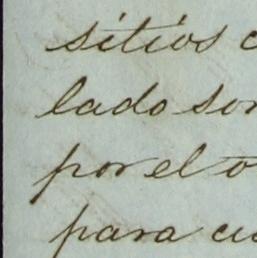 sitios c
lado son
por el o
para cu